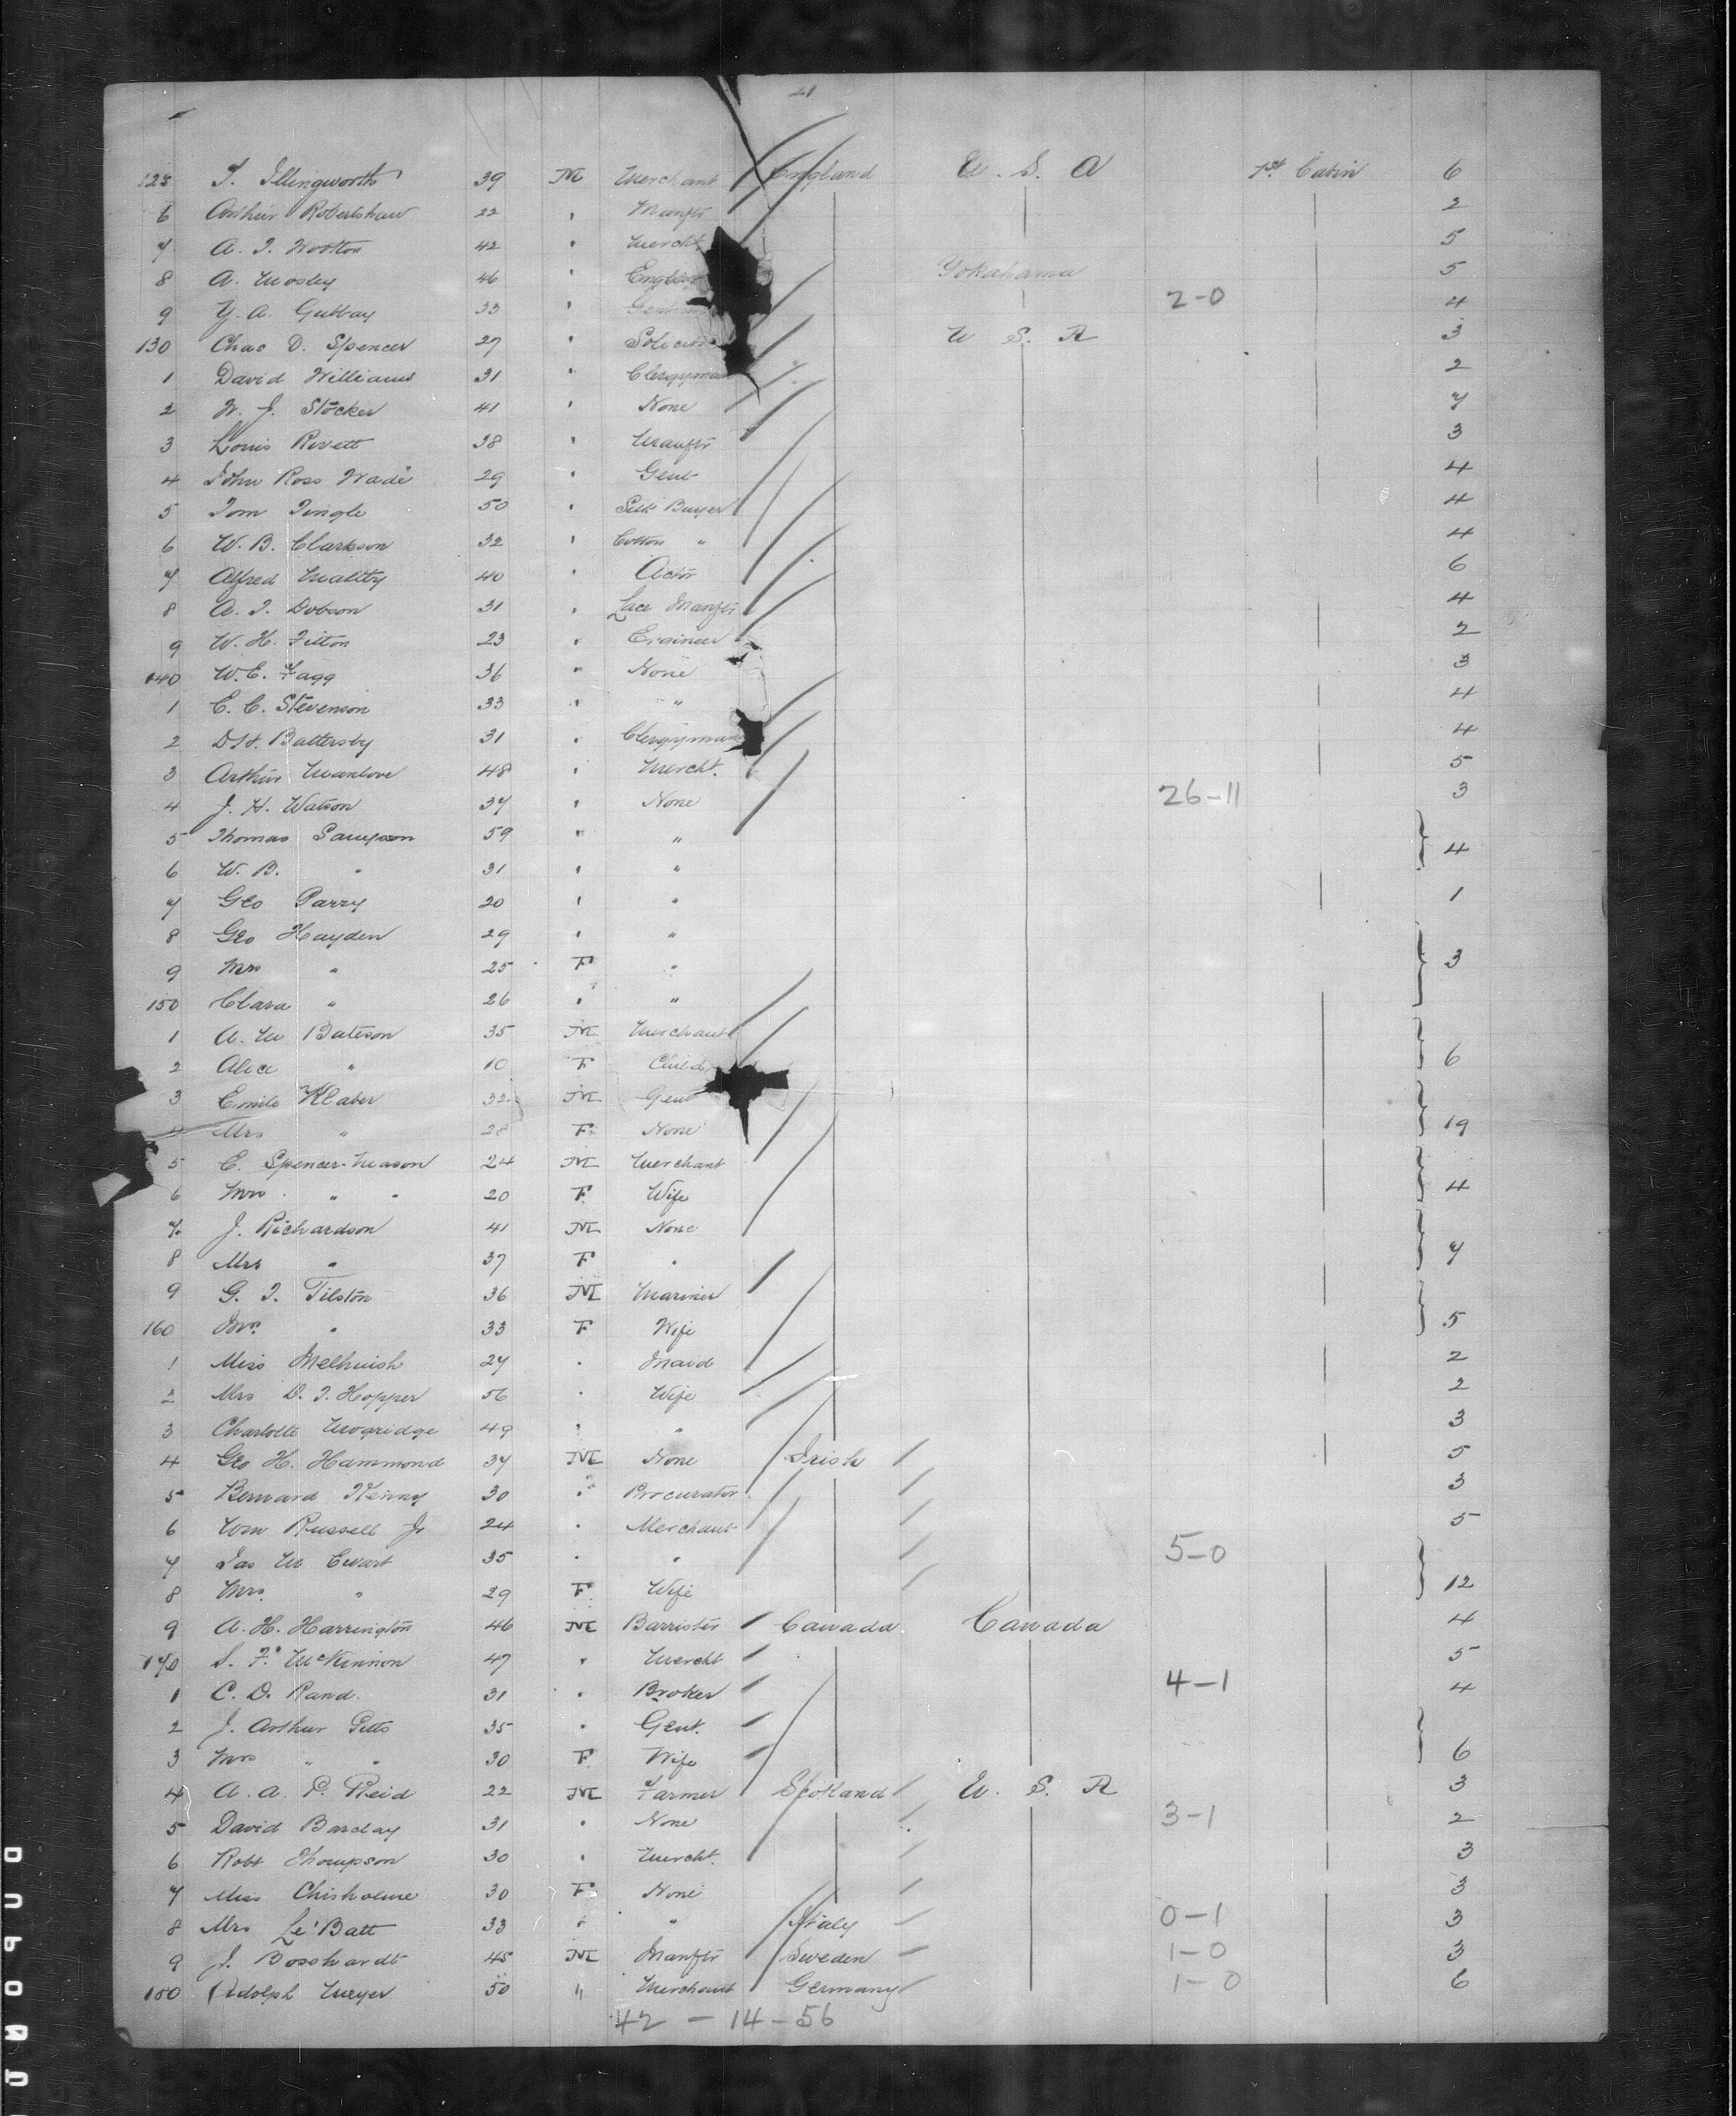 21
125 T. Illingworth 39 M Merchant England U. S. A 1st Cabin 6
6 Arthur Robertshaw 22 " Manftr 2
7 A. T. Wootton 42 " Mercht 5
8 A. Mosley 46 " Yokahama 5
9 Y. A. Gubbay 33 " 2-0 4
130 Chas D. Spencer 27 " U. S. A 3
1 David Williams 31 " Clergyman 2
2 W. J. Stocker 41 " None 7
3 Louis Revett 38 " Manftr 3
4 John Ross Wade 29 " Gent 4
5 Tom Tingle 50 " Silk Buyer 4
6 W. B. Clarkson 32 " Cotton " 4
7 Alfred Maltby 40 " Actor 6
8 A. T. Dobson 31 " Lace Manftr 4
9 W. H. Fitton 23 " Engineer 2
140 W. E. Fagg 36 " None 3
1 E. C. Stevenson 33 " " 4
2 D. H. Battersby 31 " Clergyman 4
3 Arthur Manlove 48 " Mercht. 5
4 J. H. Watson 37 " None 26-11 3
5 Thomas Sampson 59 " " 4
6 W. B. " 31 " "
7 Geo Parry 20 " " 1
8 Geo Hayden 29 " "
9 Mrs " 25 F " 3
150 Clara " 26 " "
1 A. M Bateson 35 M Merchant
2 Alice " 10 F Child 6
3 Emile Klaber 32 M Gent
4 Mrs " 28 F None 19
5 E. Spencer-Mason 24 M Merchant
6 Mrs " " 20 F Wife 4
7 J. Richardson 41 M None
8 Mrs " 37 F " 7
9 G. T. Tilston 36 M Mariner
160 Mrs " 33 F Wife 5
1 Miss Melhuish 27 " Maid 2
2 Mrs D. T. Hopper 56 " Wife 2
3 Charlotte Mogridge 49 " " 3
4 Geo H. Hammond 37 M None Irish 5
5 Bernard Kenny 30 " Procurator 3
6 Wm Russell Jr 24 " Merchant 5
7 Jas M Ewart 35 " " 5-0
8 Mrs. " 29 F Wife 12
9 A. H. Harrington 46 M Barrister Canada Canada 4
170 S. F. McKinnon 47 " Mercht 5
1 C. D. Rand 31 " Broker 4-1 4
2 J. Arthur Pitts 35 " Gent.
3 Mrs " " 30 F Wife 6
4 A. A. P. Reid 22 M Farmer Scotland U. S. A 3
5 David Barclay 31 " None 3-1 2
6 Robt Thompson 30 " Mercht. 3
7 Miss Chisholme 30 F None 3
8 Mrs Le'Batt 33 " " Italy 0-1 3
9 J. Bosshardt 45 M Manftr Sweden 1-0 3
180 Adolph Meyer 50 " Merchant Germany 1-0 6
42-14-56